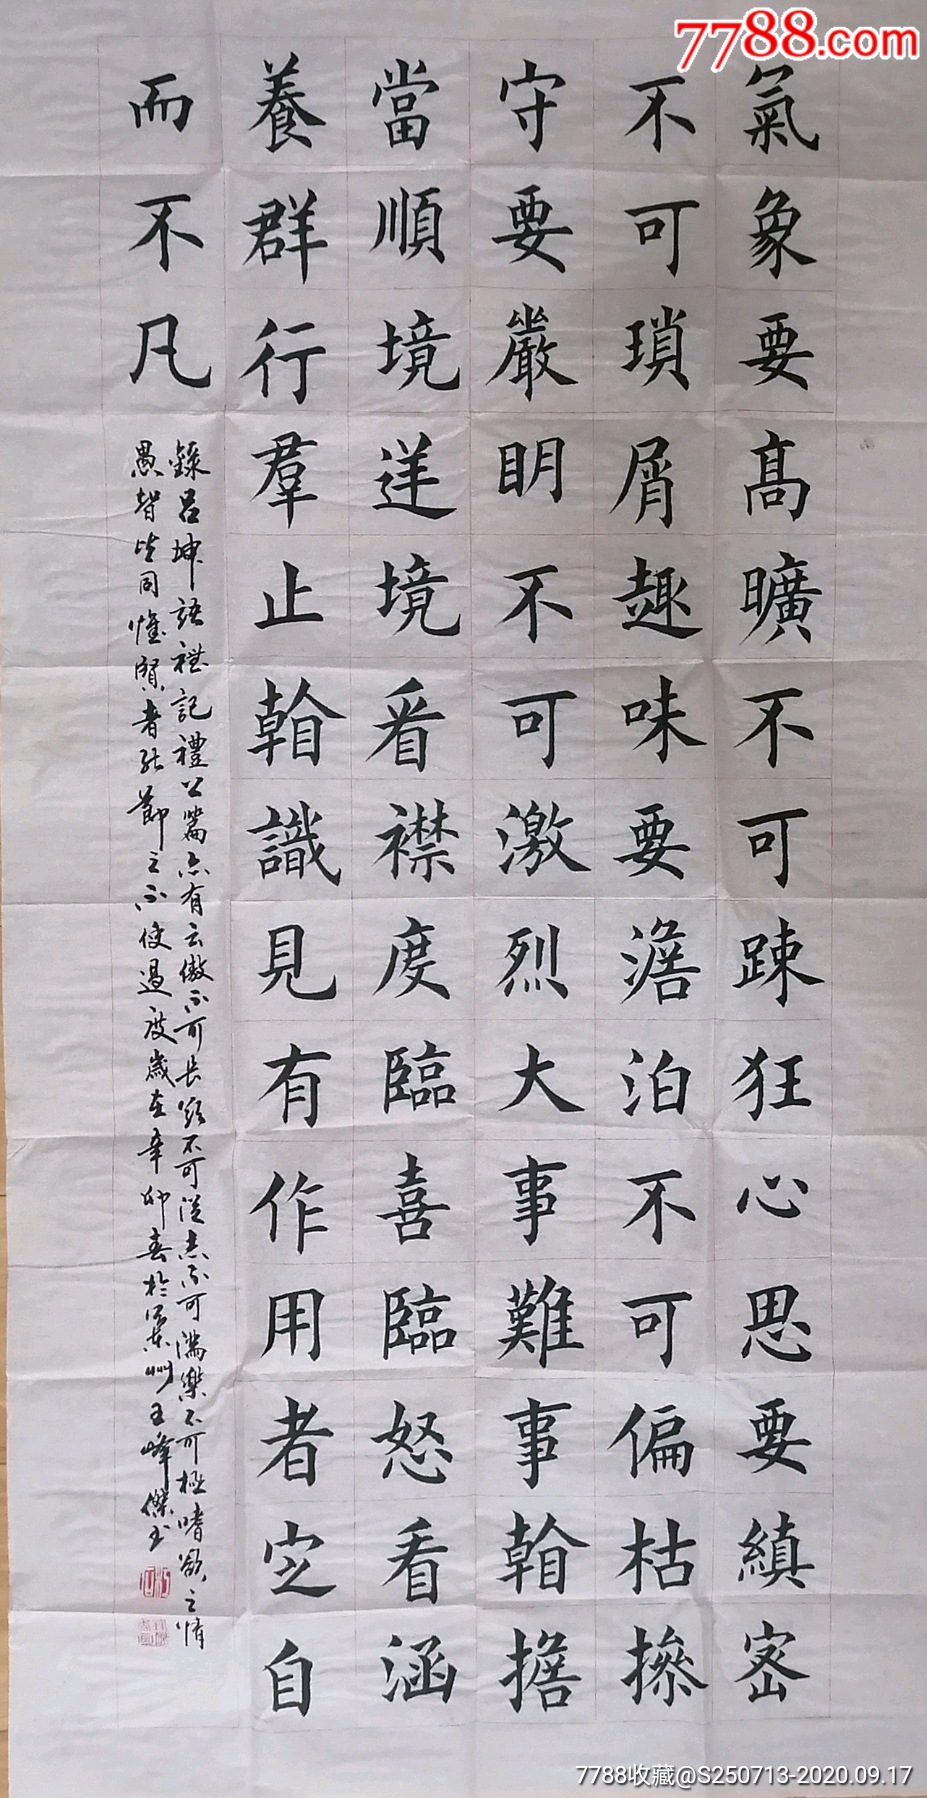 7788.com
氣象要髙曠不可踈狂心思要縝宻
不可瑣屑趣味要澹泊不可偏枯掺
守要嚴明不可激烈大事難事看擔
當順境逆境看襟度臨喜臨怒看涵
養群行羣止看識見有作用者定自
而不凡
錄呂坤語禮記禮篇亦有云傲不可長欲不可從志不可滿樂不可極嗜欲之情
愚智皆同惟賢者能節之不使過度歲在辛卯春於州王峰傑書
7788收藏@S250713-2020.09.17